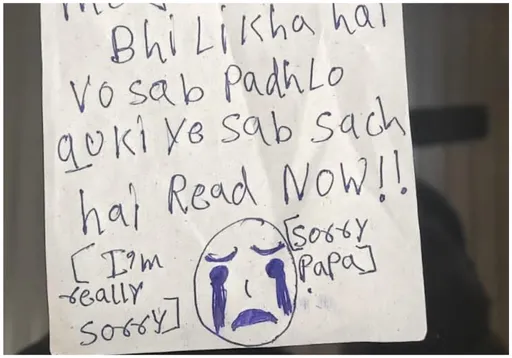 Bhi Likha hai
vo sab Padhlo
quki ye sab sach
hai Read NOW!!
[I'm
really
sorry]
[sorry
Papa]